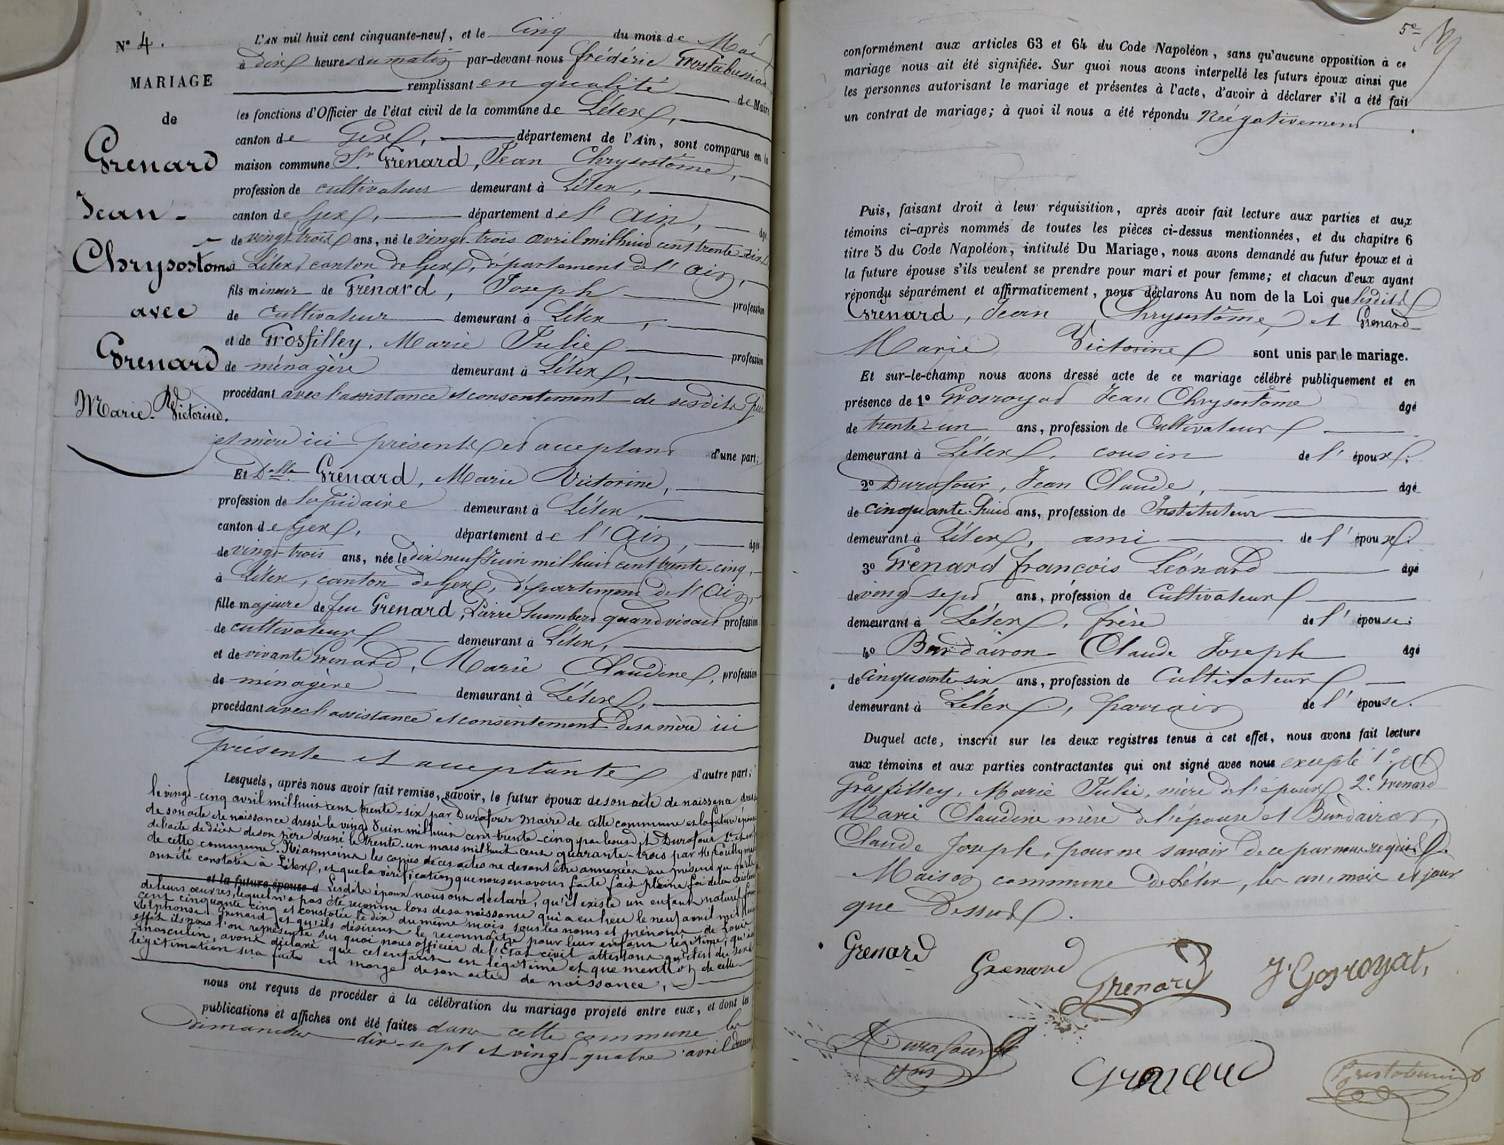 N° 4.
MARIAGE
de
Grenard
Jean
Chrysostome
avec
Grenard
Marie Victorine.
L'AN mil huit cent cinquante-neuf, et le Cinq du mois de Mai
à dix heures du matin par-devant nous Frédéric
remplissant en qualité de Maire
les fonctions d'Officier de l'état civil de la commune de Lélex,
canton de Gex, département de l'Ain, sont comparus en la
maison commune Sr. Grenard, Jean Chrysostôme,
profession de cultivateur demeurant à Lélex,
canton de Gex, département de l'Ain, âgé
de vingt-trois ans, né le vingt-trois avril mil huit cent trente-six
à Lélex, canton de Gex, département de l'Ain,
fils mineur de Grenard, Joseph profession
de cultivateur demeurant à Lélex,
et de Grosfilley, Marie Julie profession
de ménagère demeurant à Lélex,
procédant avec l'assistance et consentement de sesdits père
et mère ici présents et acceptant d'une part;
Et Dlle Grenard, Marie Victorine,
profession de lapidaire demeurant à Lélex,
canton de Gex, département de l'Ain, âgée
de vingt-trois ans, née le dix neuf Juin mil huit cent trente-cinq,
à Lélex, canton de Gex, département de l'Ain,
fille majeure de feu Grenard, Pierre humbert quand vivait profession
de cultivateur demeurant à Lélex,
et de vivante Grenard, Marie Claudine, profession
de ménagère demeurant à Lélex,
procédant avec l'assistance et consentement de sa mère ici
présente et acceptante d'autre part;
Lesquels, après nous avoir fait remise, savoir, le futur époux de son acte de naissance dressé
le vingt-cinq avril mil huit cent trente-six par Durafour Maire de cette commune et la future épouse
de son acte de naissance dressé le vingt Juin mil huit cent trente-cinq par ledit Durafour
l'acte de décès de son père dressé le trente-un mars mil huit cent quarante-trois par
de cette commune. Néanmoins les copies de ces actes ne devant être annexées au présent vu qu'elles
ont été constatées à Lélex, et que la vérification que nous en avons faite fait pleine foi de leur
et la future épouse d Lesdits époux nous ont déclaré, qu'il existe un enfant naturel
de leurs œuvres, lequel n'a pas été reconnu lors de sa naissance qui a eu lieu le neuf avril mil huit
cent cinquante cinq et constatée le dix du même mois sous les noms et prénoms de Louis
Alphonse Grenard et qu'ils désirent le reconnaître pour leur enfant légitime,
effet ils nous l'on représenté sur quoi nous officier de l'Etat civil attestons qu'il est du sexe
masculin, avons déclaré que cet enfant en légitime et que mention de cette
légitimation sera faite en marge de son acte de naissance,
nous ont requis de procéder à la célébration du mariage projeté entre eux, et dont les
publications et affiches ont été faites dans cette commune les
dimanches dix-sept et vingt-quatre avril dernier
5e
conformément aux articles 63 et 64 du Code Napoléon, sans qu'aucune opposition à ce
mariage nous ait été signifiée. Sur quoi nous avons interpellé les futurs époux ainsi que
les personnes autorisant le mariage et présentes à l'acte, d'avoir à déclarer s'il a été fait
un contrat de mariage; à quoi il nous a été répondu Négativement.
Puis, faisant droit à leur réquisition, après avoir fait lecture aux parties et aux
témoins ci-après nommés de toutes les pièces ci-dessus mentionnées, et du chapitre 6
titre 5 du Code Napoléon, intitulé Du Mariage, nous avons demandé au futur époux et à
la future épouse s'ils veulent se prendre pour mari et pour femme; et chacun d'eux ayant
répondu séparément et affirmativement, nous déclarons Au nom de la Loi que lesdits
Grenard, Jean Chrysostôme, et Grenard
Marie Victorine sont unis par le mariage.
Et sur-le-champ nous avons dressé acte de ce mariage célébré publiquement et en
présence de 1° Grosroyat Jean Chrysostôme âgé
de trente-un ans, profession de Cultivateur
demeurant à Lélex, cousin de l'époux.
2° Durafour, Jean Claude, âgé
de cinquante-huit ans, profession de Instituteur
demeurant à Lélex, ami de l'époux.
3° Grenard françois Léonard âgé
de vingt sept ans, profession de Cultivateur
demeurant à Lélex, frère de l'épouse;
4° Burdairon Claude Joseph âgé
de cinquante-six ans, profession de Cultivateur
demeurant à Lélex, parrain de l'épouse.
Duquel acte, inscrit sur les deux registres tenus à cet effet, nous avons fait lecture
aux témoins et aux parties contractantes qui ont signé avec nous excepté 1°
Grosfilley, Marie Julie, mère de l'époux 2° Grenard
Marie Claudine mère de l'épouse et Burdairon,
Claude Joseph, pour ne savoir de ce par nous requis.
Maison commune de Lélex, les an, mois et jour
que Dessus.
Grenard
Grenard
Grenard
J. Gosroyat,
Durafour
Grenard